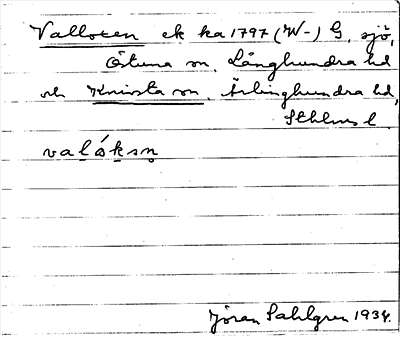 Valloxen ek ka 1797 (W-) G, sjö,
Östuna sn, Långhundra hd
och Knivsta sn, Ärlinghundra hd,
Sthlms l.
valóksn̥
Jöran Sahlgren 1934.